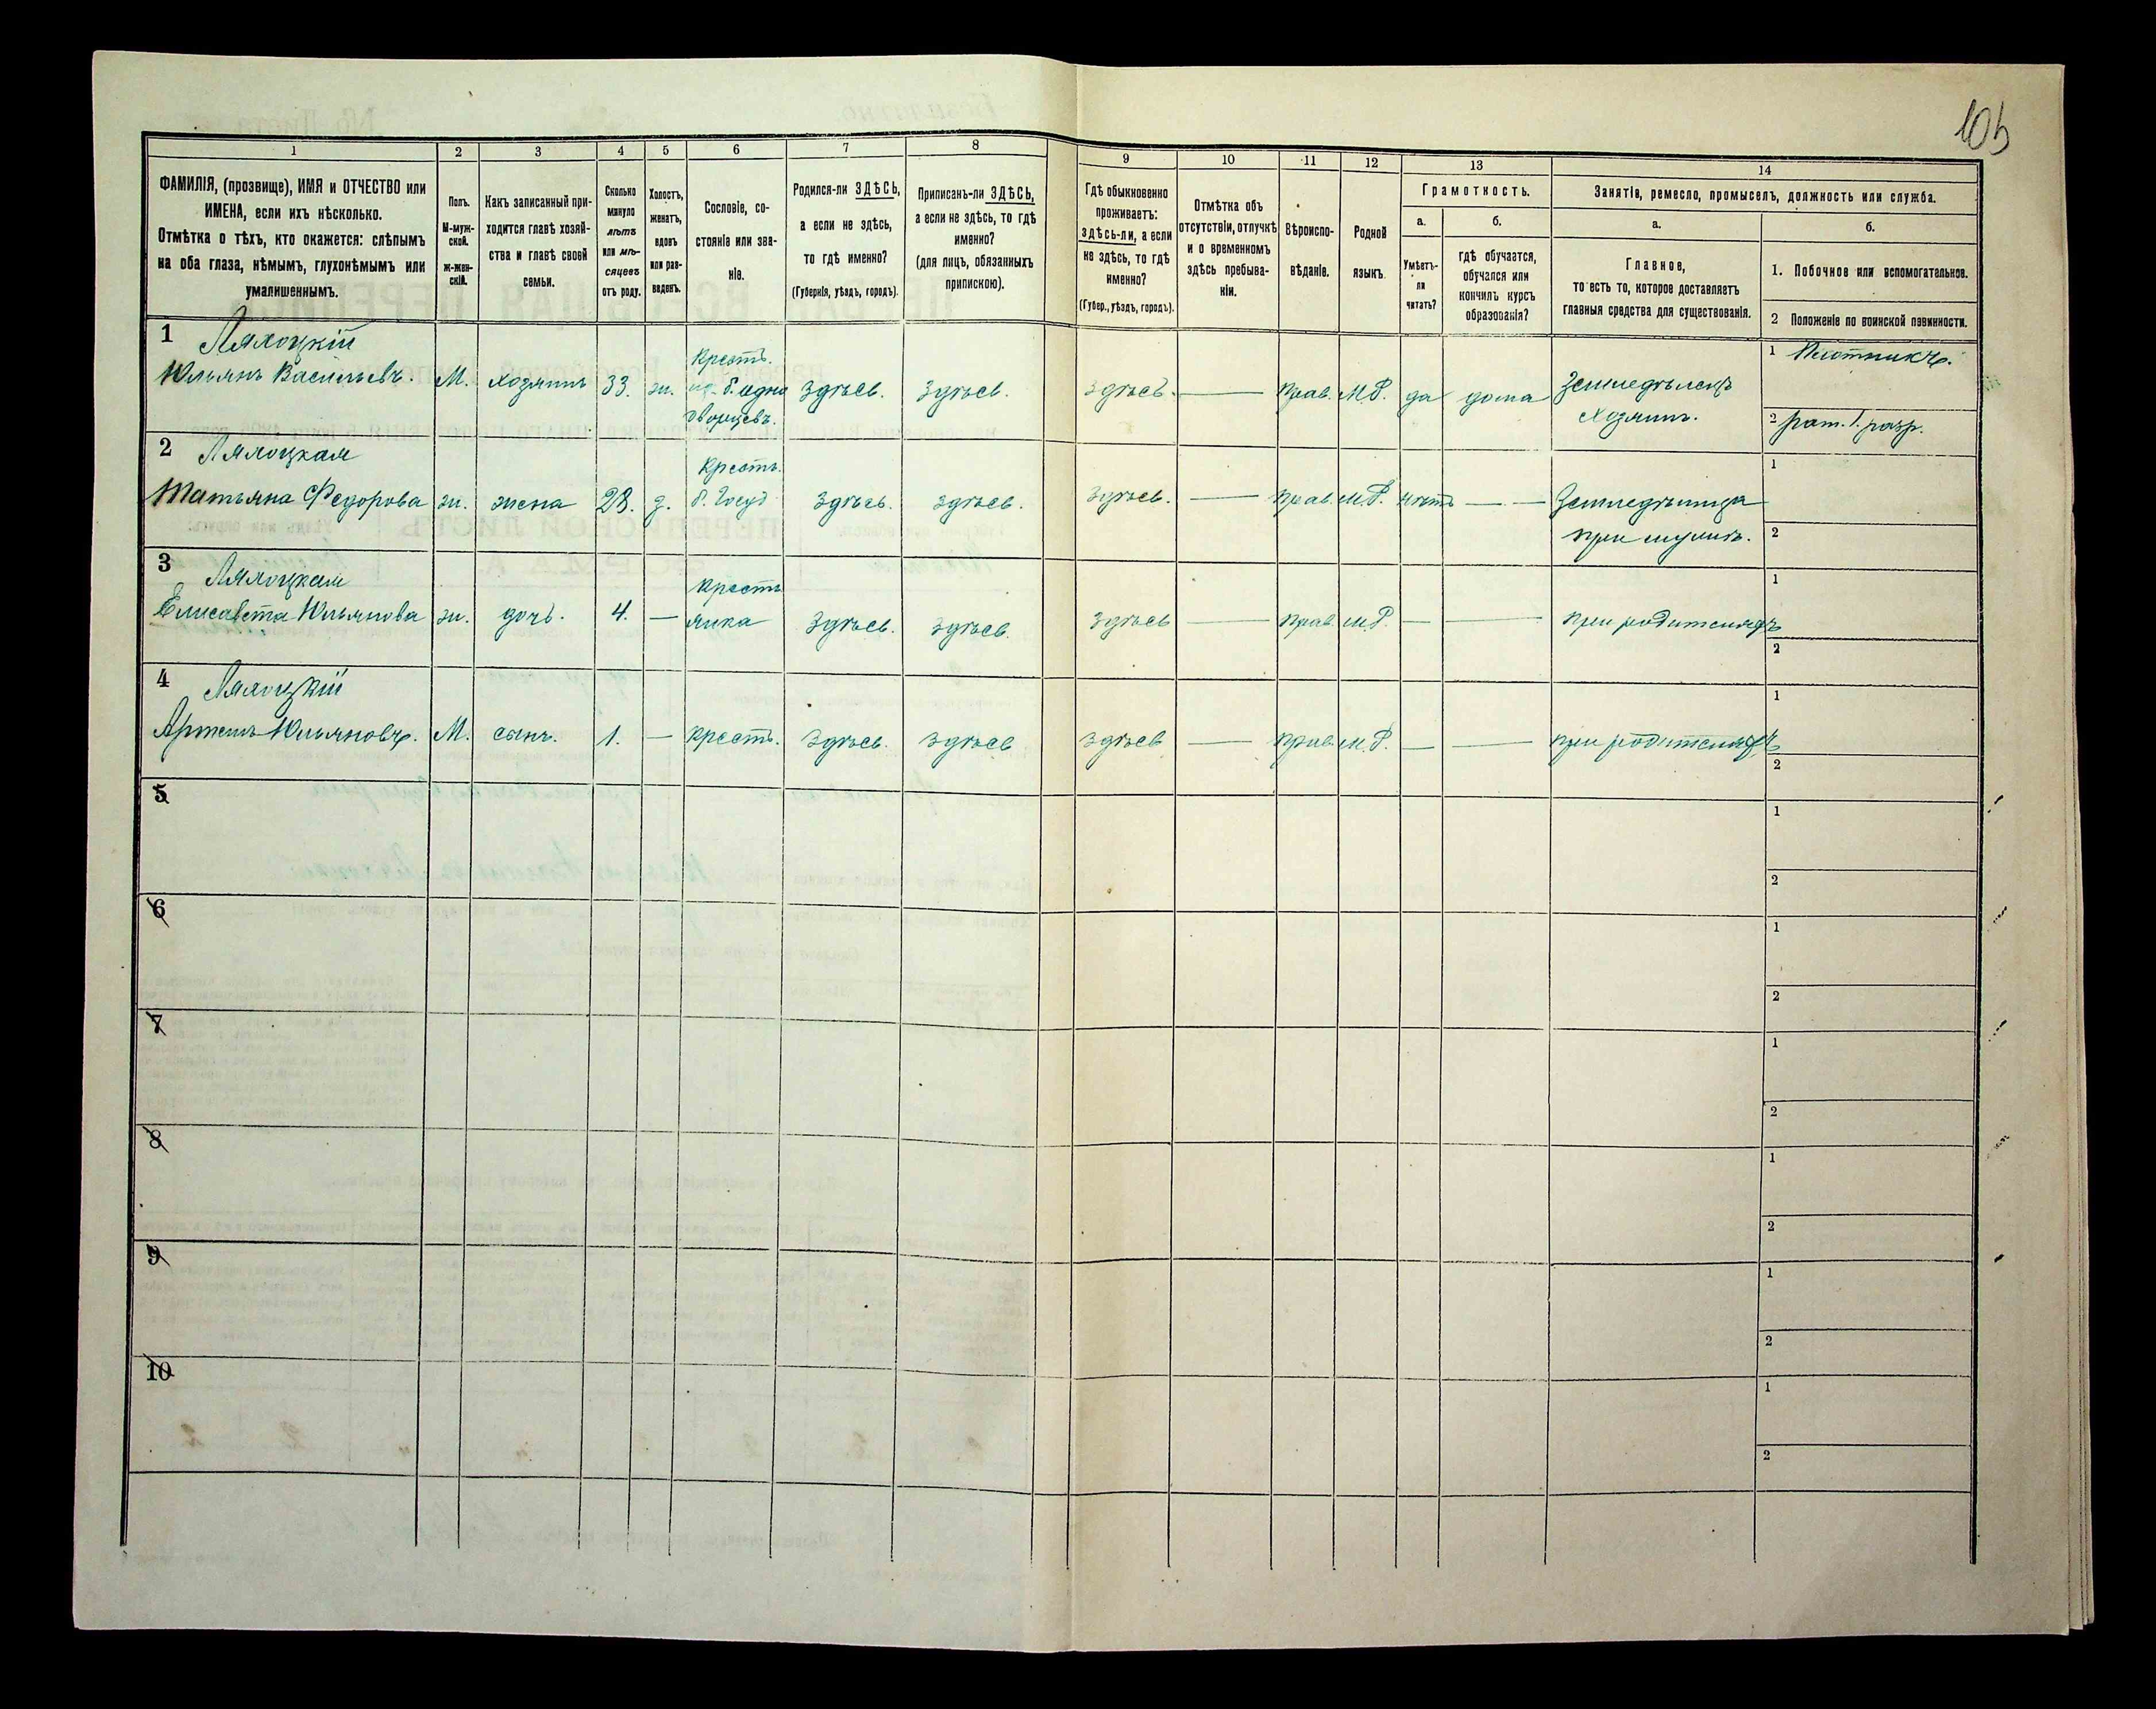 105
1
2
3
4
5
6
7
8
9
10
11
12
13
14
ФАМИЛІЯ, (прозвище), ИМЯ и ОТЧЕСТВО или
ИМЕНА, если ихъ нѣсколько.
Отмѣтка о тѣхъ, кто окажется: слѣпымъ
на оба глаза, нѣмымъ, глухонѣмымъ или
умалишеннымъ.
Полъ.
М-муж-
ской.
ж-жен-
скій.
Какъ записанный при-
ходится главѣ хозяй-
ства и главѣ своей
семьи.
Сколько
минуло
лѣтъ
или мѣ-
сяцевъ
отъ роду.
Холостъ,
женатъ,
вдовъ
или раз-
веденъ.
Сословіе, со-
стояніе или зва-
ніе.
Родился-ли ЗДѢСЬ,
а если не здѣсь,
то гдѣ именно?
(Губернія, уѣздъ, городъ).
Приписанъ-ли ЗДѢСЬ,
а если не здѣсь, то гдѣ
именно?
(для лицъ, обязанныхъ
припискою).
Гдѣ обыкновенно
проживаетъ:
здѣсь-ли, а если
не здѣсь, то гдѣ
именно?
(Губер., уѣздъ, городъ).
Отмѣтка объ
отсутствіи, отлучкѣ
и о временномъ
здѣсь пребыва-
ніи.
Вѣроиспо-
вѣданіе.
Родной
языкъ.
Грамотность.
а.
Умѣетъ-
ли
читать?
б.
гдѣ обучается,
обучался или
кончилъ курсъ
образованія?
Занятіе, ремесло, промыселъ, должность или служба.
а.
Главное,
то есть то, которое доставляетъ
главныя средства для существованія.
б.
1. Побочное или вспомогательное.
2 Положеніе по воинской повинности.
1 Лялоцкій
Юльянъ Васильевъ.
М.
хозяинъ
33.
ж.
Крестъ.
из. б. одно
дворцевъ.
Здѣсь.
Здѣсь.
Здѣсь.
Прав.
М.Р.
да
дома
Земледѣлецъ
хозяинъ.
1 Плотникъ.
2 рат. 1. разр.
2 Лялоцкая
Татьяна Федорова
ж.
жена
28.
з.
Крестъ.
б. Госуд
Здѣсь.
Здѣсь.
Здѣсь.
Прав.
М.Р.
нѣтъ
Земледѣлица
при мужѣ.
1
2
3 Лялоцкая
Елисавета Юльянова
ж.
дочь.
4.
Крестъ
янка
Здѣсь.
Здѣсь.
Здѣсь
Прав.
М.Р.
при родителяхъ
1
2
4 Лялоцкій
Артемъ Юльяновъ.
М.
сынъ.
1.
Крестъ.
Здѣсь.
Здѣсь
Здѣсь
Прав.
М.Р.
при родителяхъ
1
2
5
1
2
6
1
2
7
1
2
8
1
2
9
1
2
10
1
2